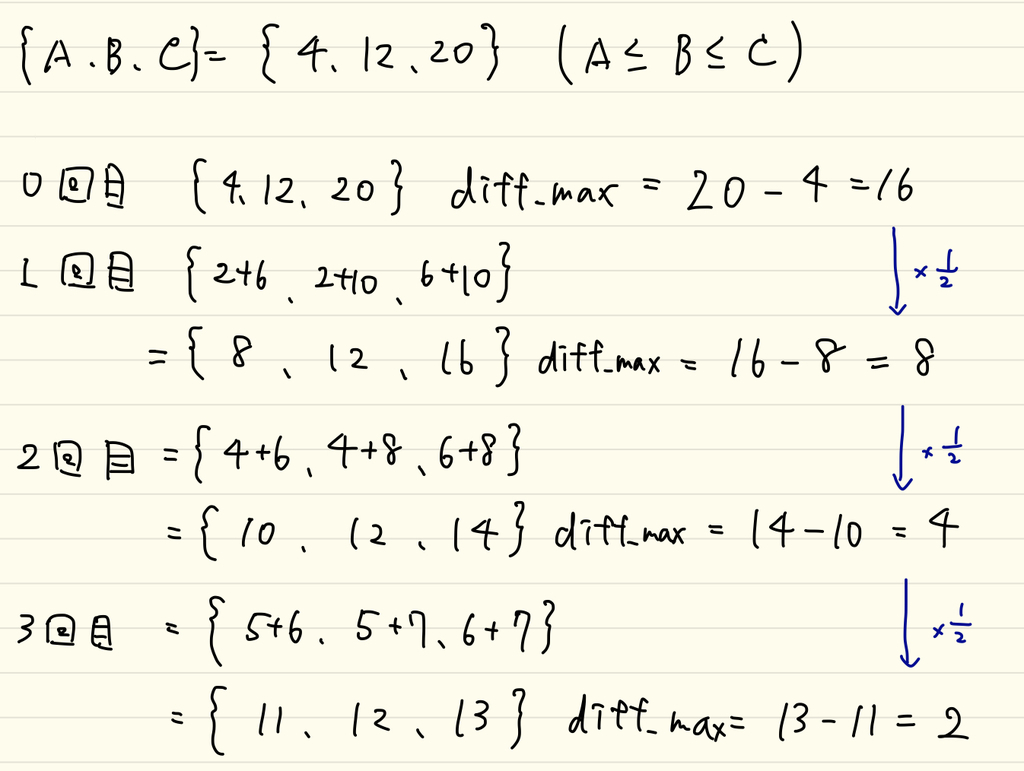 {A.B.C}= {4、12、20} (A≤ B≤ C)
0回目 {4、12、20} diff_max = 20 - 4 =16
1回目 {2+6、2+10、6+10}
×1/2
={ 8、12、16 } diff_max = 16 - 8 = 8
2回目 ={ 4+6、4+8、6+8}
×1/2
={ 10、12、14 } diff_max = 14 - 10 = 4
3回目 = { 5+6、5+7、6+7}
×1/2
= { 11、12、13 } diff_max= 13 - 11 = 2